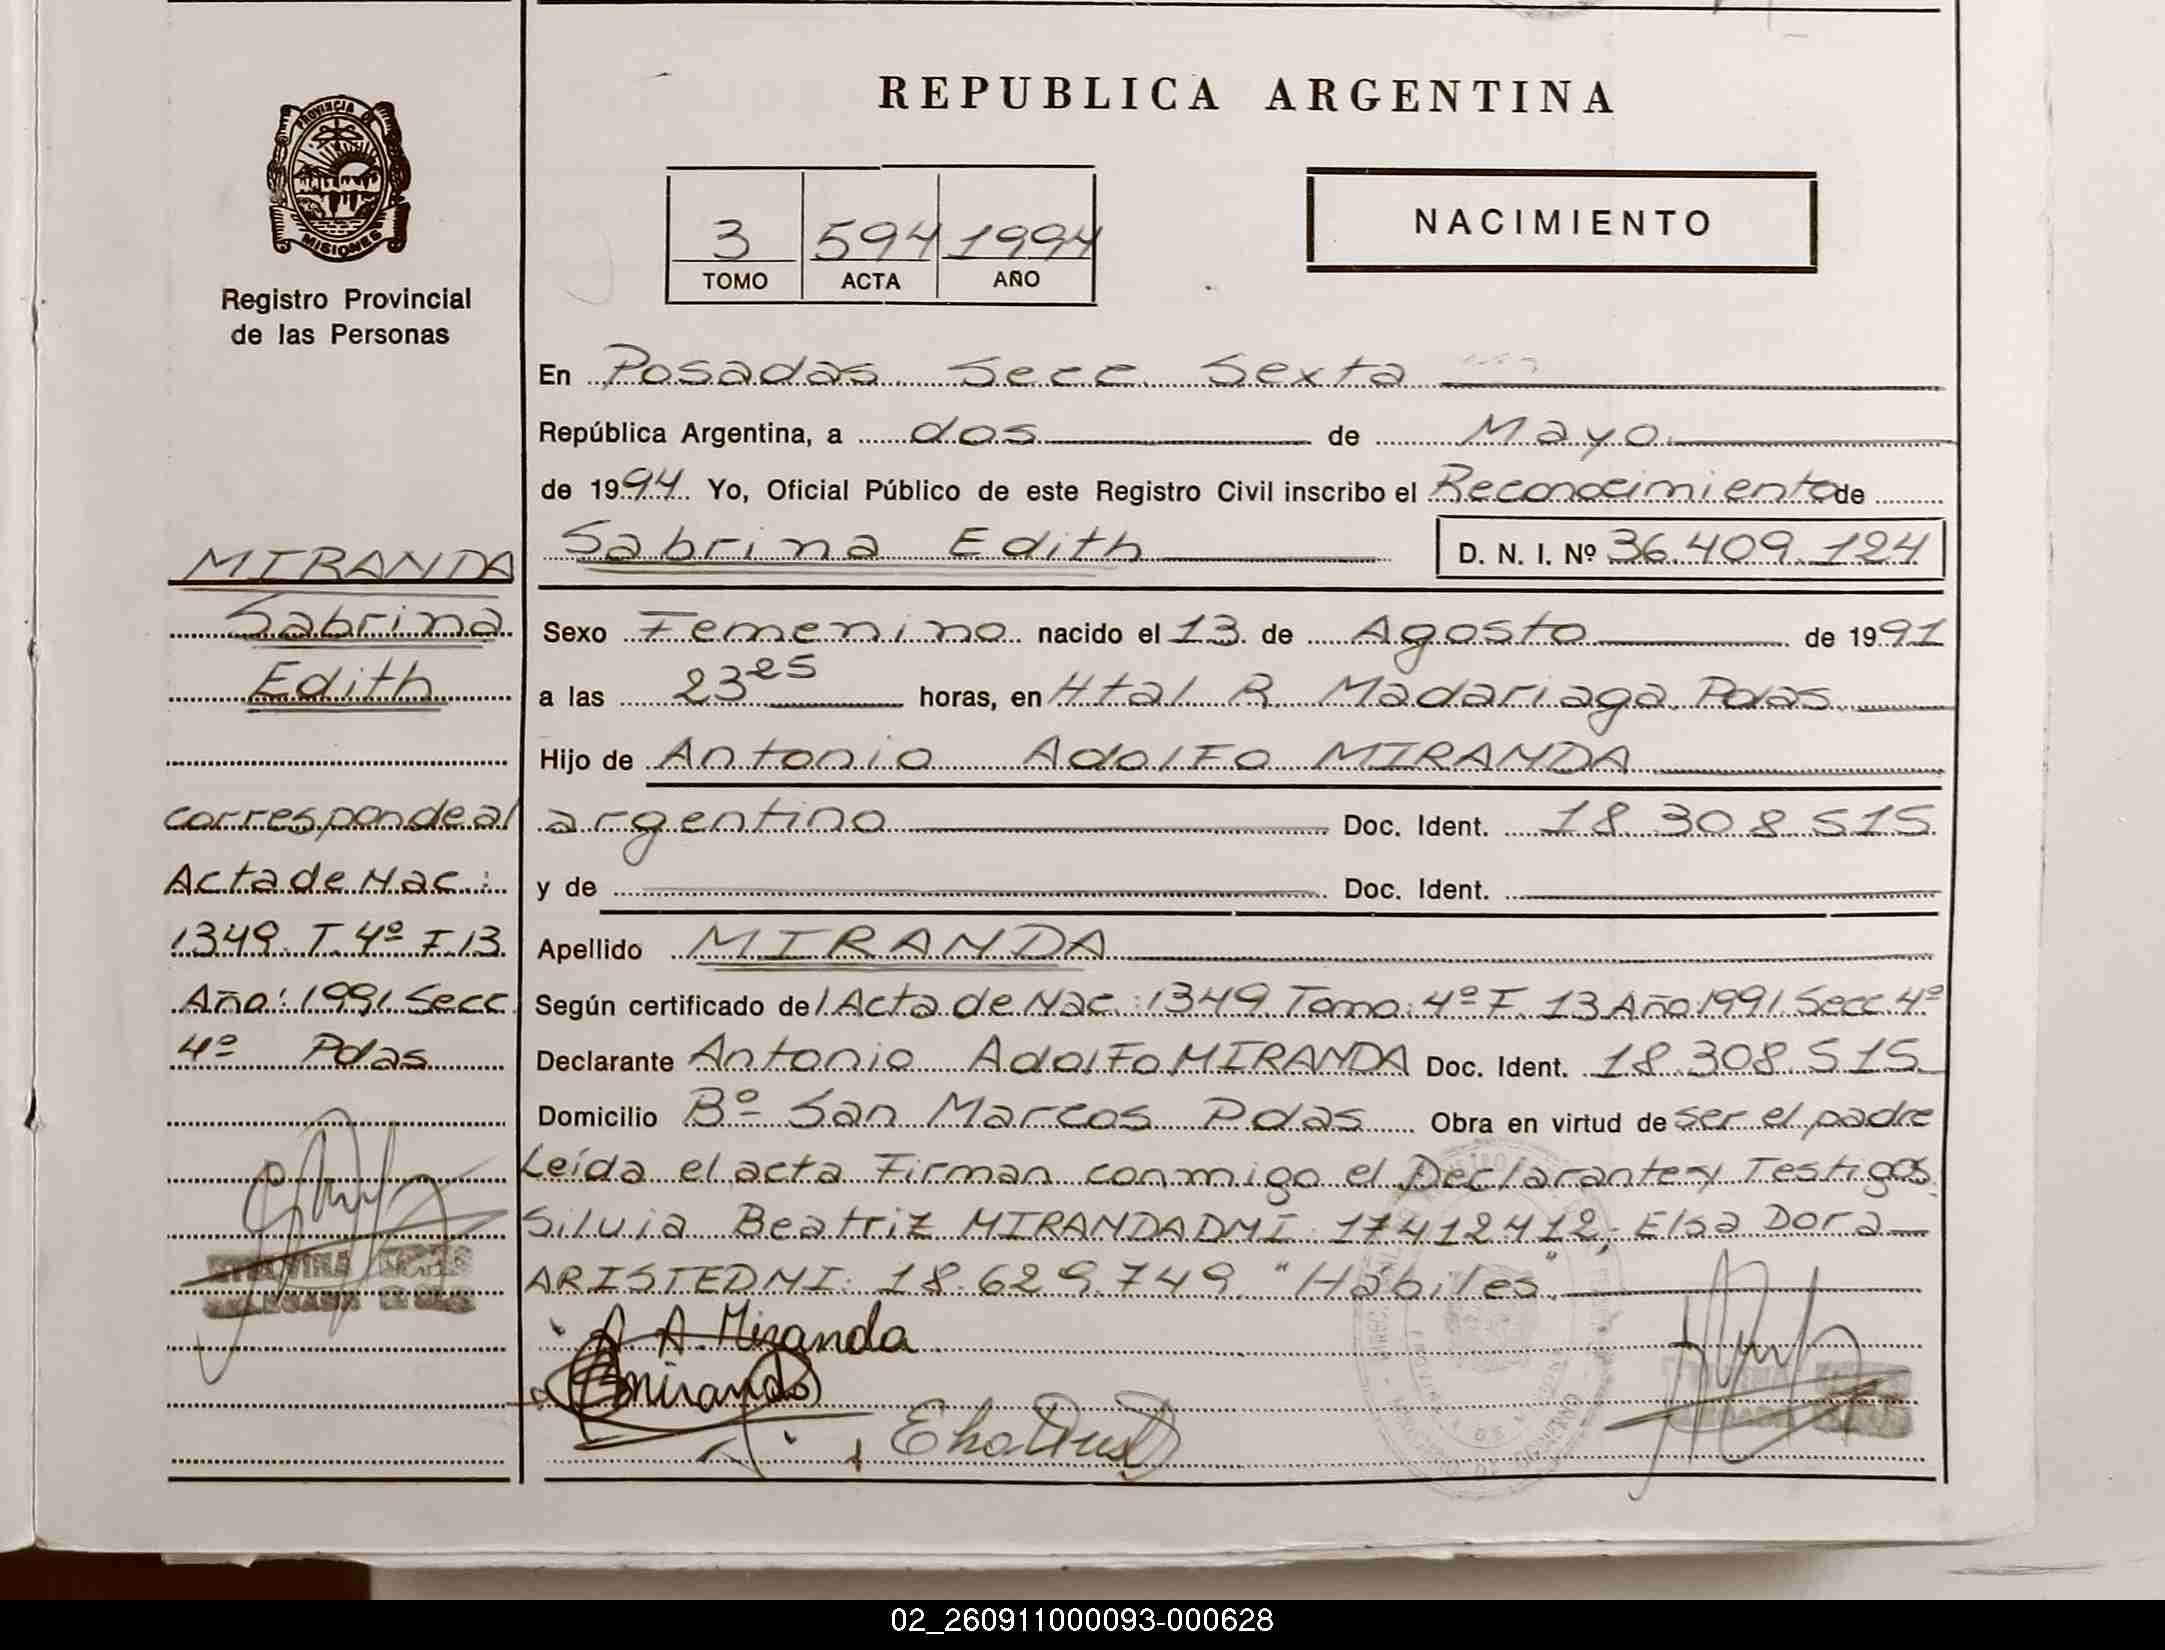 REPUBLICA ARGENTINA
PROVINCIA DE
MISIONES
Registro Provincial
de las Personas
3 594 1994
TOMO ACTA AÑO
NACIMIENTO
En Posadas Secc. Sexta
República Argentina, a dos de Mayo
de 1994. Yo, Oficial Público de este Registro Civil inscribo el Reconocimiento de
Sabrina Edith D. N. I. Nº 36.409.124
Sexo Femenino nacido el 13 de Agosto de 1991
a las 23 25 horas, en Htal R. Madariaga Pdas
Hijo de Antonio Adolfo MIRANDA
argentino Doc. Ident. 18.308.515
y de Doc. Ident.
Apellido MIRANDA
Según certificado de l Acta de Nac.: 1349 Tomo: 4º F. 13 Año: 1991 Secc. 4º
Declarante Antonio Adolfo MIRANDA Doc. Ident. 18.308.515
Domicilio Bº San Marcos Pdas Obra en virtud de ser el padre
Leída el acta Firman conmigo el Declarante y Testigos
Silvia Beatriz MIRANDA DNI 17412412; Elsa Dora
ARISTE DNI: 18.629.749 "Hábiles"
A. A. Miranda
MIRANDA
Sabrina
Edith
corresponde al
Acta de Nac.:
1349. T. 4º F. 13
Año: 1991 Secc
4º Pdas
02_260911000093-000628